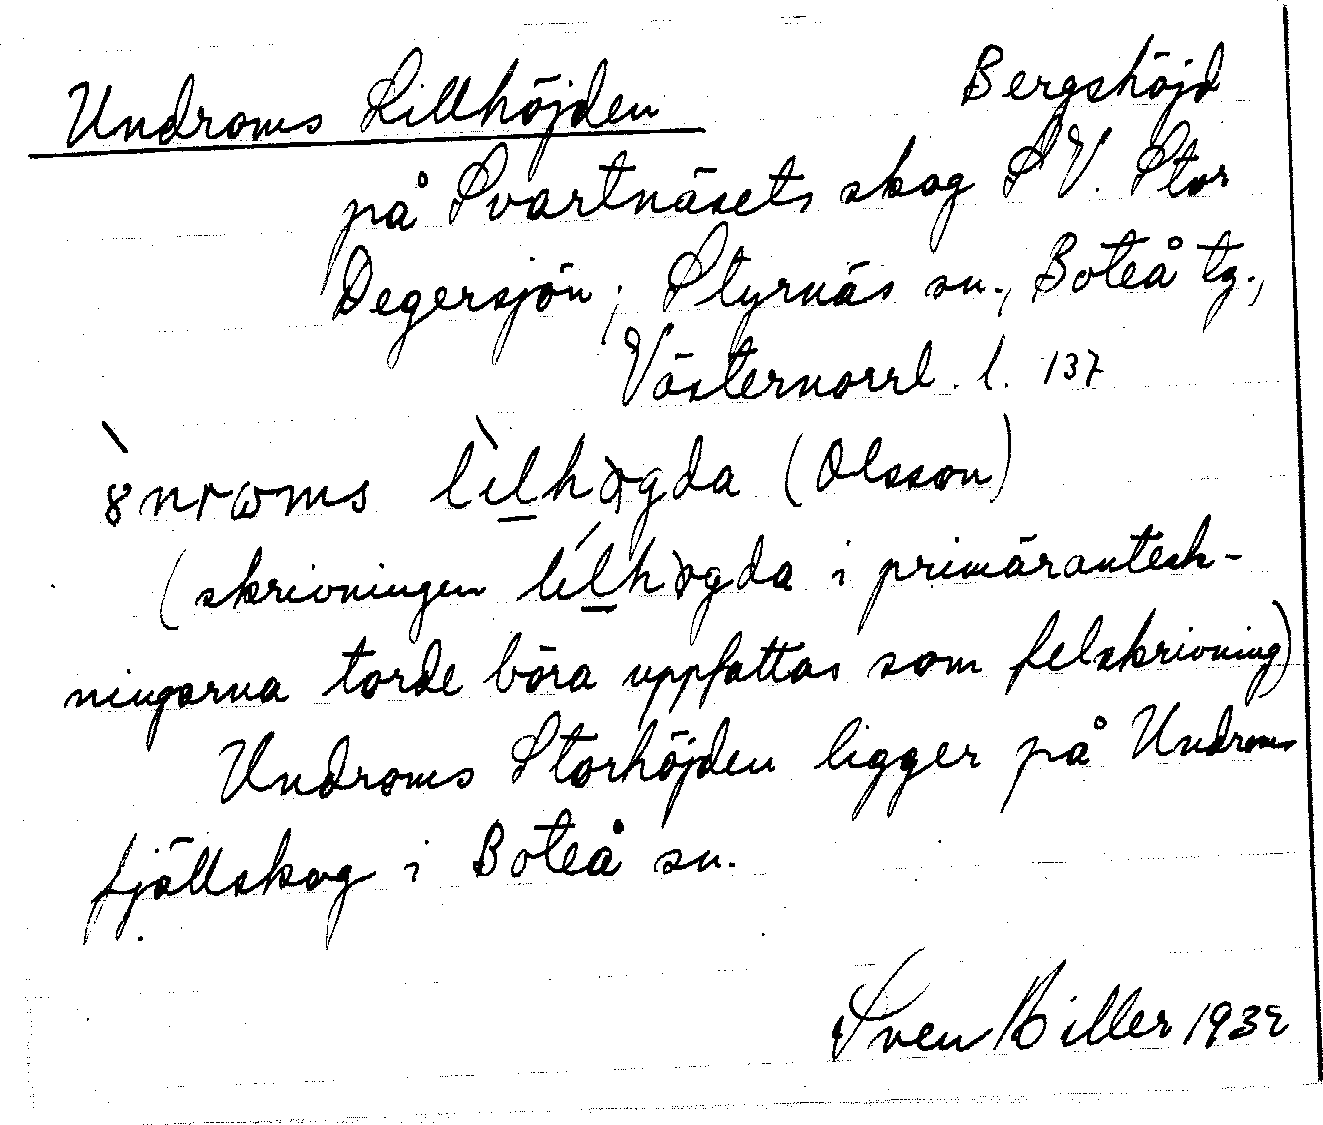 Undroms Lillhöjden Bergshöjd
på Svartnäsets skog SV. Stor
Degersjön, Styrnäs sn., Boteå tg.,
Västernorrl. l. 137
(Olsson)
(skrivningen i primäranteck-
ningarna torde böra uppfattas som felskrivning)
Undroms Storhöjden ligger på Undroms
fjällskog i Boteå sn.
Sven Biller 1932